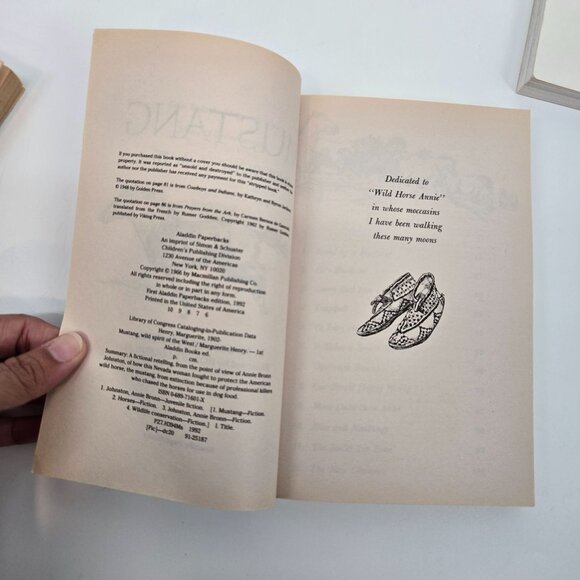 If you purchased this book without a cover you should be aware that this book is stolen
property. It was reported as "unsold and destroyed" to the publisher and neither the
author nor the publisher has received any payment for this "stripped book."
The quotation on page 81 is from Cowboys and Indians, by Kathryn and Byron Jackson,
© 1948 by Golden Press
The quotation on page 86 is from Prayers from the Ark, by Carmen Bernos de
translated from the French by Rumer Godden, Copyright 1962 by Rumer
published by Viking Press.
Aladdin Paperbacks
An imprint of Simon & Schuster
Children's Publishing Division
1230 Avenue of the Americas
New York, NY 10020
Copyright © 1966 by Macmillan Publishing Co.
All rights reserved including the right of reproduction
in whole or in part in any form.
First Aladdin Paperbacks edition, 1992
Printed in the United States of America
10 9 8 7 6
Library of Congress Cataloging-in-Publication Data
Henry, Marguerite, 1902-
Mustang, wild spirit of the West / Marguerite Henry. — 1st
Aladdin Books ed.
p. cm.
Summary: A fictional retelling, from the point of view of Annie Bronn
Johnston, of how this Nevada woman fought to protect the American
wild horse, the mustang, from extinction because of professional killers
who chased the horses for use in dog food.
ISBN 0-689-71601-X
1. Johnston, Annie Bronn—Juvenile fiction. [1. Mustang—Fiction.
2. Horses—Fiction. 3. Johnston, Annie Bronn—Fiction.
4. Wildlife conservation—Fiction.] I. Title.
PZ7.H394Ms 1992
[Fic]—dc20 91-25187
Dedicated to
"Wild Horse Annie"
in whose moccasins
I have been walking
these many moons